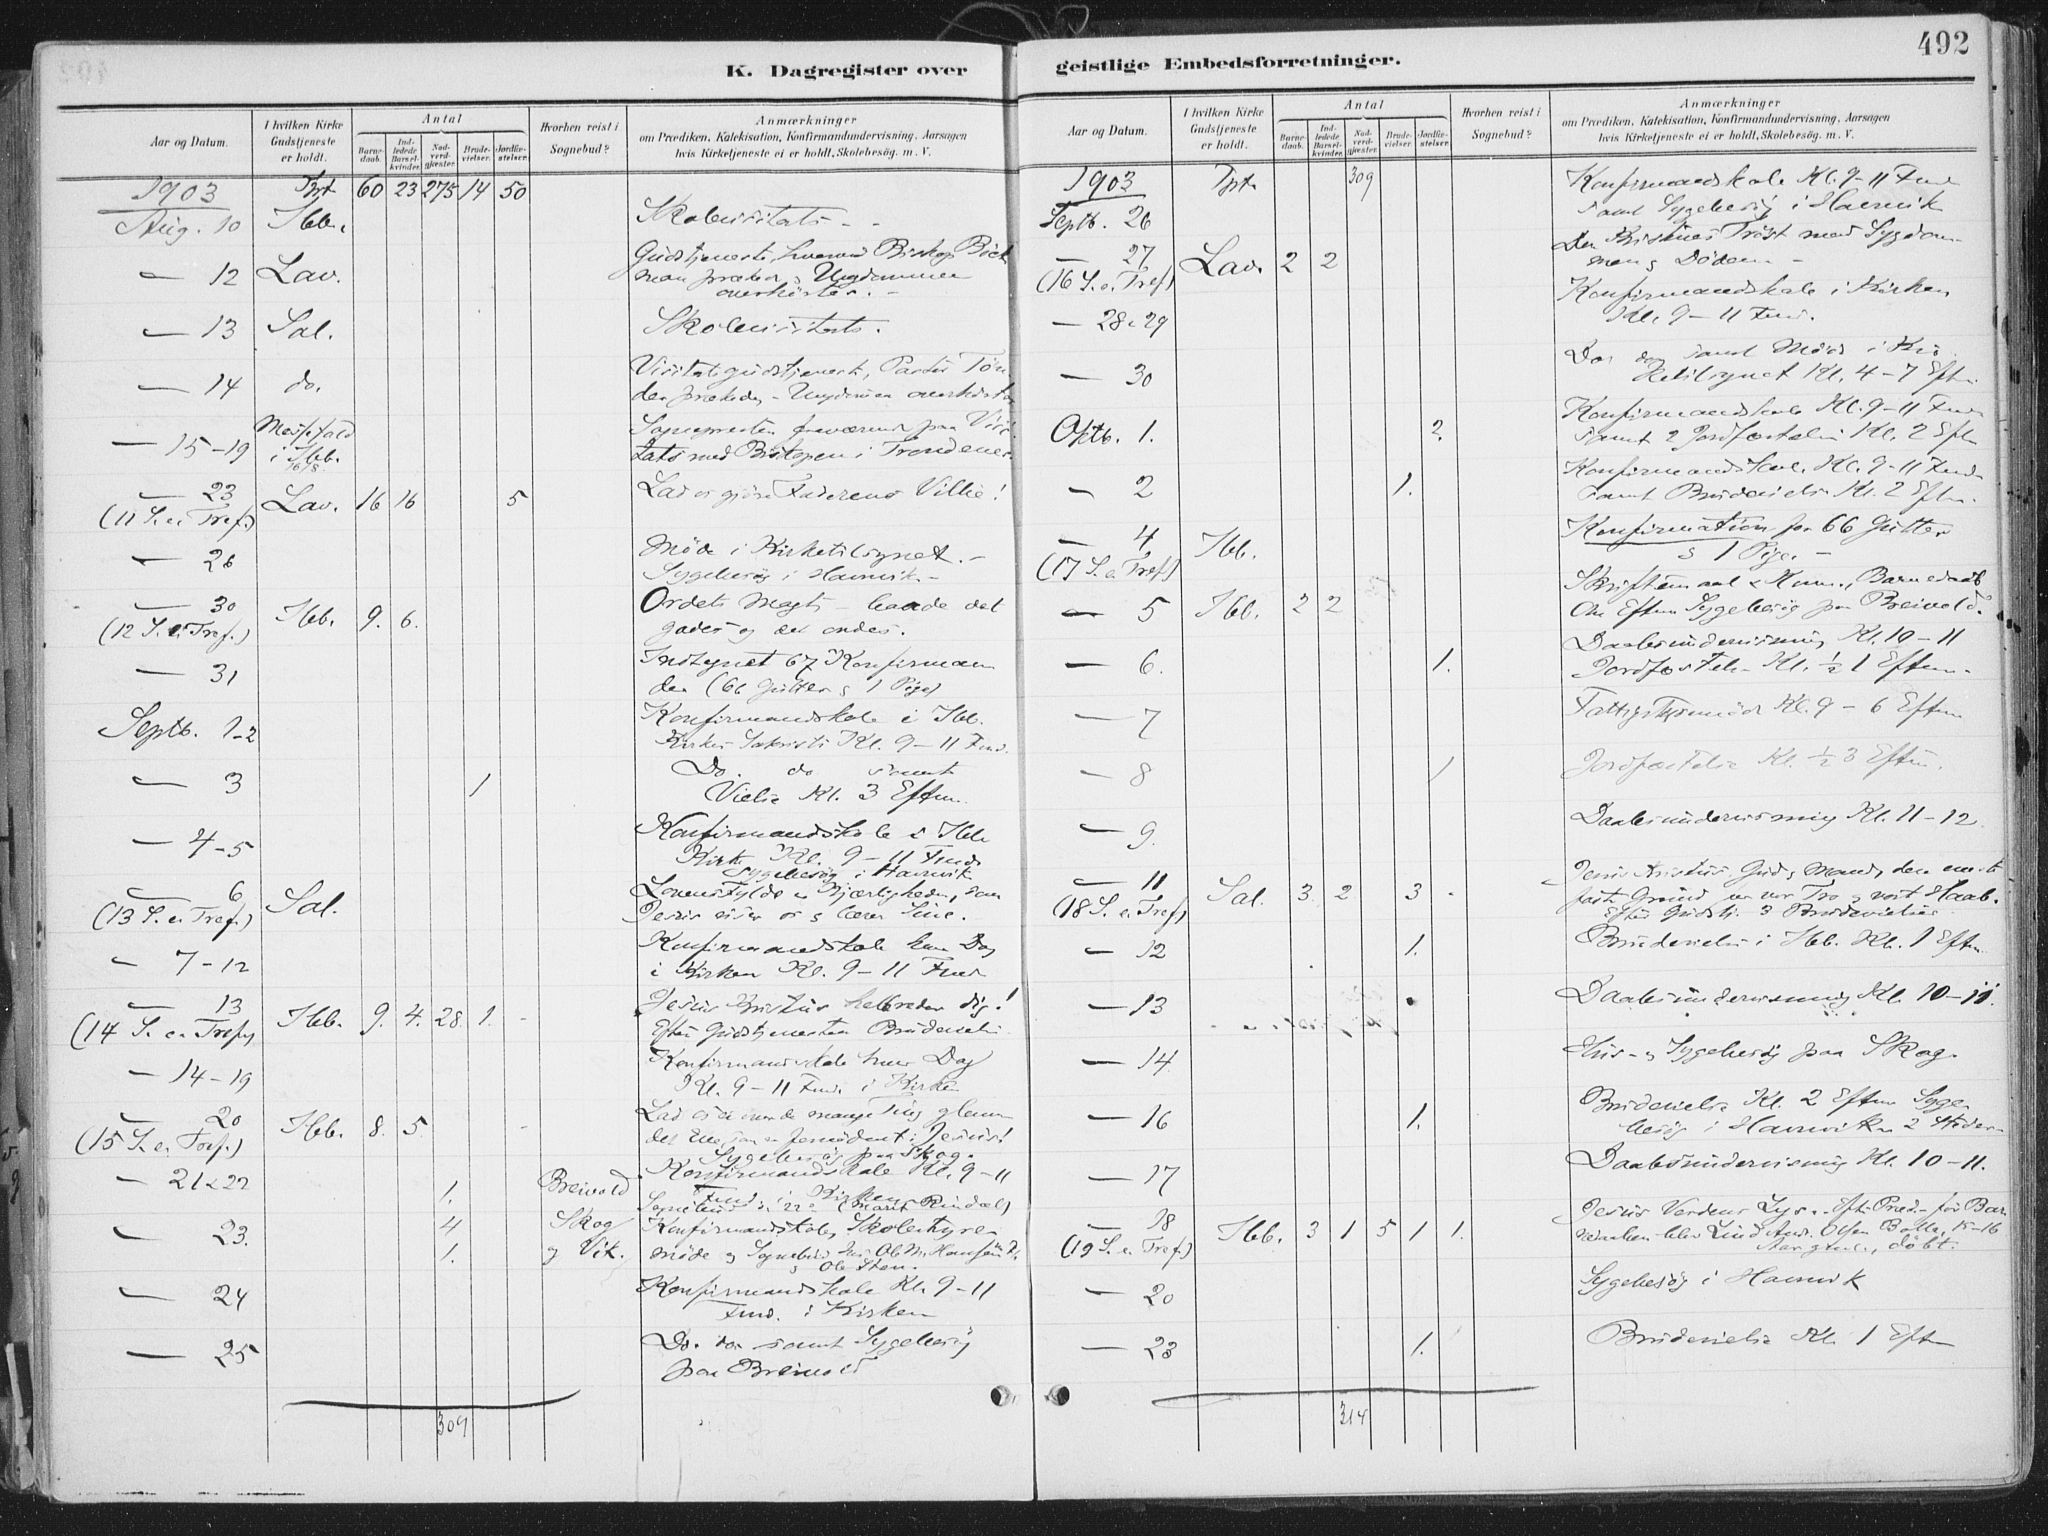 492
K. Dagregister over geistlige Embedsforretninger.
Aar og Datum.
I hvilken Kirke Gudstjeneste er holdt.
Antal
Barne-daab.
Ind-ledede Barsel-kvinder.
Nad-verd-gjæster.
Brude-vielser.
Jordfæ-stelser.
Hvorhen reist i Sognebud?
Anmærkninger
om Prædiken, Katekisation, Konfirmandundervisning, Aarsagen
hvis Kirketjeneste ei er holdt, Skolebesög. m. V.
1903 Tprt 60 23 275 14 50
Aug. 10 Ibb. Skolevisitats -
— 12 Lav. Gudstjeneste, hvorved Biskop Böck
man præker & Ungdommen
overhørtes. -
— 13 Sal. Skolevisitats.
— 14 do. Visitatsgudstjeneste, Pastor Tön
der prækede - Ungdommen overhørtes
— 15-19 Messefald i Ibb. 16/8. Sognepresten fraværende paa Visi
tats med Biskopen i Trondenes
— 23 Lav. 16 16 5 Lad os gjöre Faderens Villie!
(11 S. e. Tref.)
— 26 Möde i Kirketilsynet. -
Sygebesög i Havnvik -
— 30 Ibb. 9. 6. Ordets Magt - baade det
(12 S. e. Tref.) godes og det ondes.
— 31 Indtegnet 67 Konfirman
der (66 Gutter & 1 Pige)
Septb. 1-2 Konfirmandskole i Ibb.
Kirkes Sakristi Kl. 9-11 Fmd.
— 3 1 Do. do samt
Vielse Kl. 3 Eftm.
— 4-5 Konfirmandskole i Ibb
Kirke Kl. 9-11 Fmd
Sygebesög i Havnvik
— 6 Sal. Lovens Fylde er Kjærligheden, som
(13 S. e. Tref.) Jesus viser os & lærer Sine.
— 7-12 Konfirmandskole hver Dag
i Kirken Kl. 9-11 Fmd
— 13 Ibb. 9. 4. 28. 1. - Jesus Kristus helbreder dig!
(14 S. e. Tref.) Efter Gudstjenesten Brudevielse.
— 14-19 Konfirmandskole hver Dag
Kl. 9-11 Fmd. i Kirken
— 20 Ibb. 8. 5. - Lad os ei over de mange Ting glemme
(15 S. e. Tref.) det Ene som er fornödent: Jesus!
Sygebesög paa Skog.
— 21 & 22 1. Breivold Konfirmandskole Kl. 9-11
Fmd. i Kirken
Sognebud 22 (Marit Rindal)
— 23. 4 1. Skog & Vik. Konfirmandskole, Skolestyre-
möde & Sognebud hos Ole M. Hansen
& Ole Sten.
— 24 Konfirmandskole Kl. 9-11
Fmd. i Kirken
— 25 Do. do. samt Sygebesög
paa Breivold
309
Aar og Datum.
I hvilken Kirke Gudstjeneste er holdt.
Antal
Barne-daab.
Ind-ledede Barsel-kvinder.
Nad-verd-gjæster.
Brude-vielser.
Jordfæ-stelser.
Hvorhen reist i Sognebud?
Anmærkninger
om Prædiken, Katekisation, Konfirmandundervisning, Aarsagen
hvis Kirketjeneste ei er holdt, Skolebesög. m. V.
1903 Tprt. 309
Septb. 26 Konfirmandskole Kl. 9-11 Fmd
samt Sygebesög i Havnvik
— 27 Lav. 2 2 Den Kristnes Tröst mod Sygdom-
(16 S. e. Tref) men & Döden -
— 28 & 29 Konfirmandskole i Kirken
Kl. 9-11 Fmd.
— 30 Do. do samt Möde i Kir
ketilsynet Kl. 4-7 Eftm.
Oktb. 1. 2. Konfirmandskole Kl. 9-11 Fmd
samt 2 Jordfæstelser Kl. 2 Eftm
— 2 1. Konfirmandskole Kl. 9-11 Fmd
samt Brudevielse Kl. 2 Eftm.
— 4 Ibb. Konfirmation for 66 Gutter
(17 S. e. Tref) & 1 Pige -
— 5 Ibb. 2 2 Skriftemaal & Kom., Barnedaab
Om Eftm Sygebesög paa Breivold.
— 6. 1. Daabsundervisning Kl. 10-11
Jordfæstelse Kl. ½ 1 Eftm.
— 7 Fattigstyremöde Kl. 9-6 Eftm
— 8 1 Jordfæstelse Kl. ½ 3 Eftm.
— 9. Daabsundervisning Kl. 11-12
— 11 Sal. 3. 2 3 - Jesus Kristus, Guds Mand, den eneste
(18 S. e. Tref) faste Grund for vor Tro & vort Haab.
Efter Gudstj. 3 Brudevielser
— 12 1. Brudevielse i Ibb. Kl. 1 Eftm.
— 13 Daabsundervisning Kl. 10-11.
— 14 Hus- & Sygebesög paa Skog.
— 16 1. Brudevielse Kl. 2 Eftm Syge
besög i Havnvik 2 Steder
— 17 Daabsundervisning Kl. 10-11.
— 18 Ibb. 3 1 5 1 1. Jesus Verdens Lys. - Efter Præd. för Bar
(19 S. e. Tref.) nedaaben blev Olsen Bolle, 15-16
Aar gml., döbt.
— 20 Sygebesög i Havnvik
— 23 1. Brudevielse Kl. 1 Eftm
314